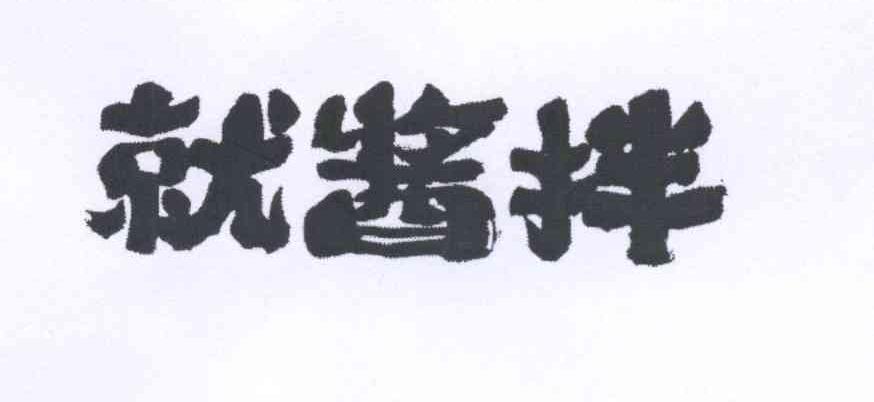 就酱拌